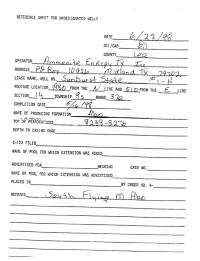 REFERENCE SHEET FOR UNDESIGNATED WELLS
DATE 6/23/98
OIL/GAS Oil
COUNTY Lea
OPERATOR Ammonite Energy TX Inc
ADDRESS PO Box 10926 Midland Tx 79702
LEASE NAME, WELL NO. Sunburst State #1-H
FOOTAGE LOCATION 1980 FROM THE N LINE AND 510 FROM THE E LINE
SECTION 14 TOWNSHIP 9s RANGE 32e
COMPLETION DATE
NAME OF PRODUCING FORMATION Abo
PERFORATIONS 8238-8276
DEPTH TO CASING SHOE
C-123 FILED
NAME OF POOL FOR WHICH EXTENSION WAS ASKED
ADVERTISED FOR HEARING CASE NO.
NAME OF POOL FOR WHICH EXTENSION WAS ADVERTISED
PLACED IN BY ORDER NO. R-
REMARKS South Flying M Abo